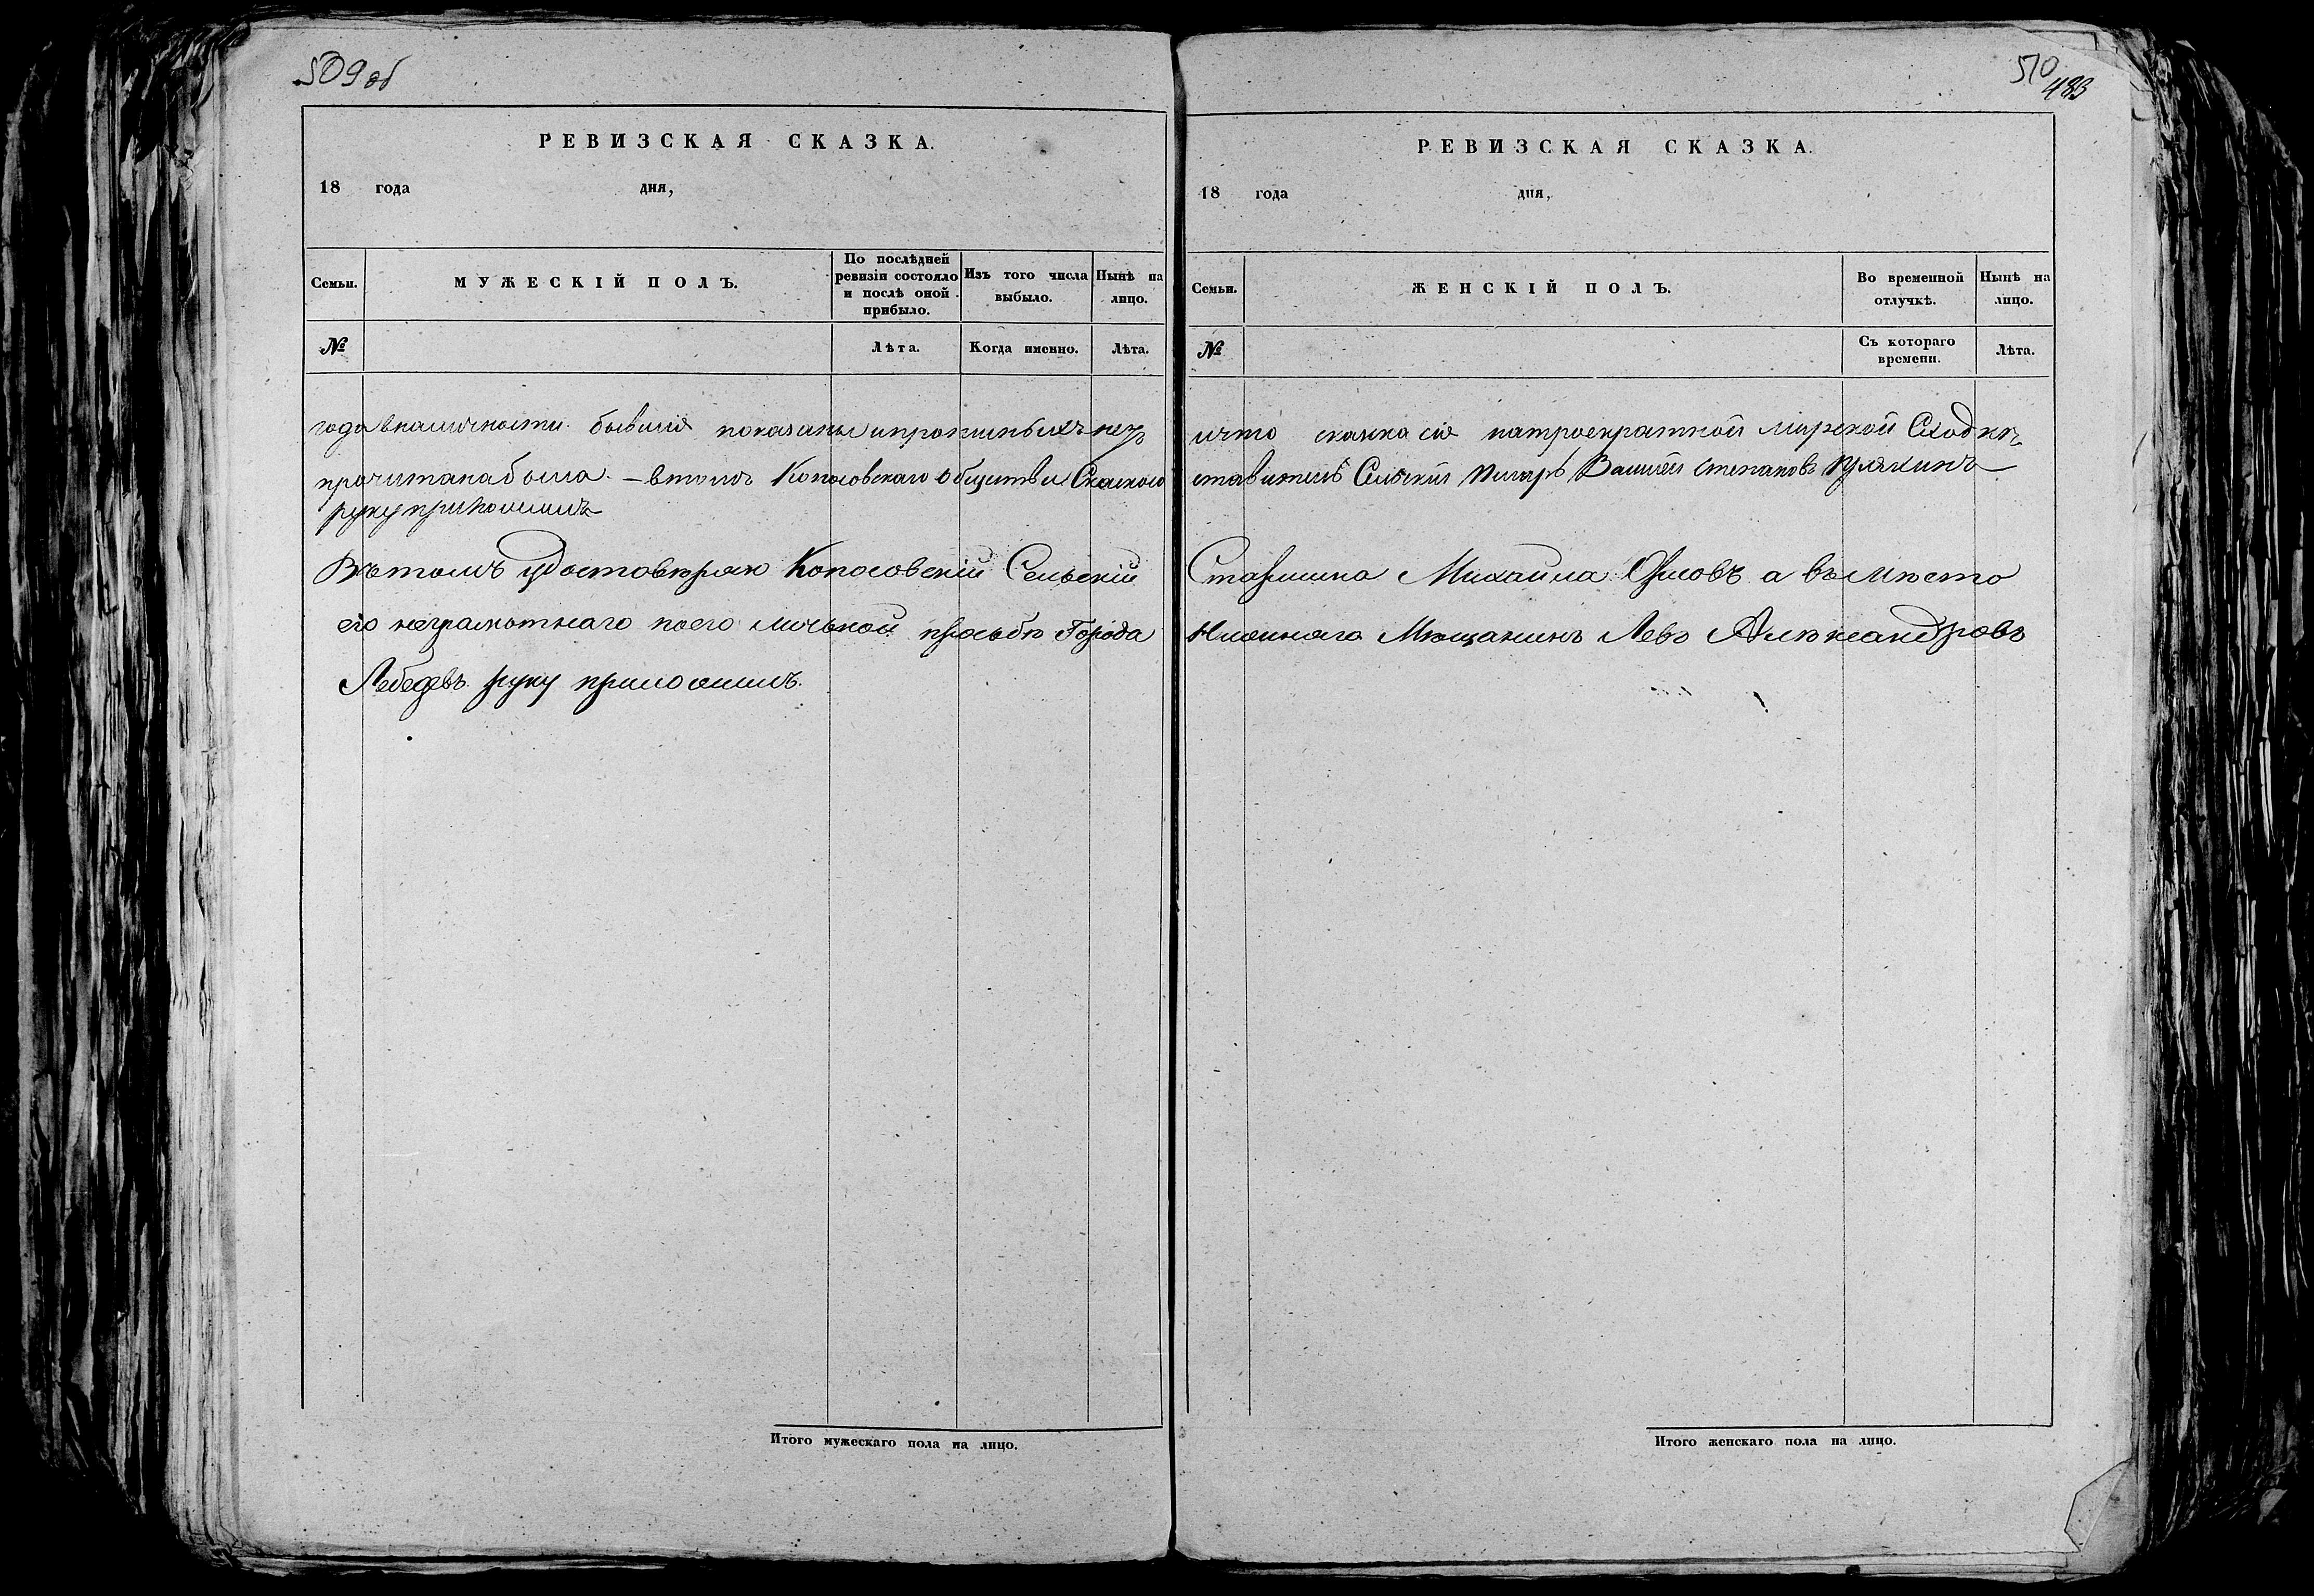 509 об
РЕВИЗСКАЯ СКАЗКА.
18 года дня,
Семьи.
МУЖЕСКІЙ ПОЛЪ.
По послѣдней ревизіи состояло и послѣ оной прибыло.
Изъ того числа выбыло.
Нынѣ на лицо.
№
Лѣта.
Когда именно.
Лѣта.
года вналичности бывшіе показаны ипропис
прочитана была. – втомъ Копосовскаго общества
руку приложилъ
Въ томъ удостовѣряю Копосовскій Сельскій
его неграмотнаго поего личьной прозьбѣ Города
Лебедевъ руку приложилъ.
Итого мужескаго пола на лицо.
510
483
РЕВИЗСКАЯ СКАЗКА.
18 года дня,
Семьи.
ЖЕНСКІЙ ПОЛЪ.
Во временной отлучкѣ.
Нынѣ на лицо.
№
Съ котораго времени.
Лѣта.
ичто сказка сіе натроекратной мирской Сходкѣ
ставитель Сельскій Писарь Василей Степановъ
Старшина Михайла Орловъ а въмѣсто
Мѣщанинъ Левъ Александровъ
Итого женскаго пола на лицо.